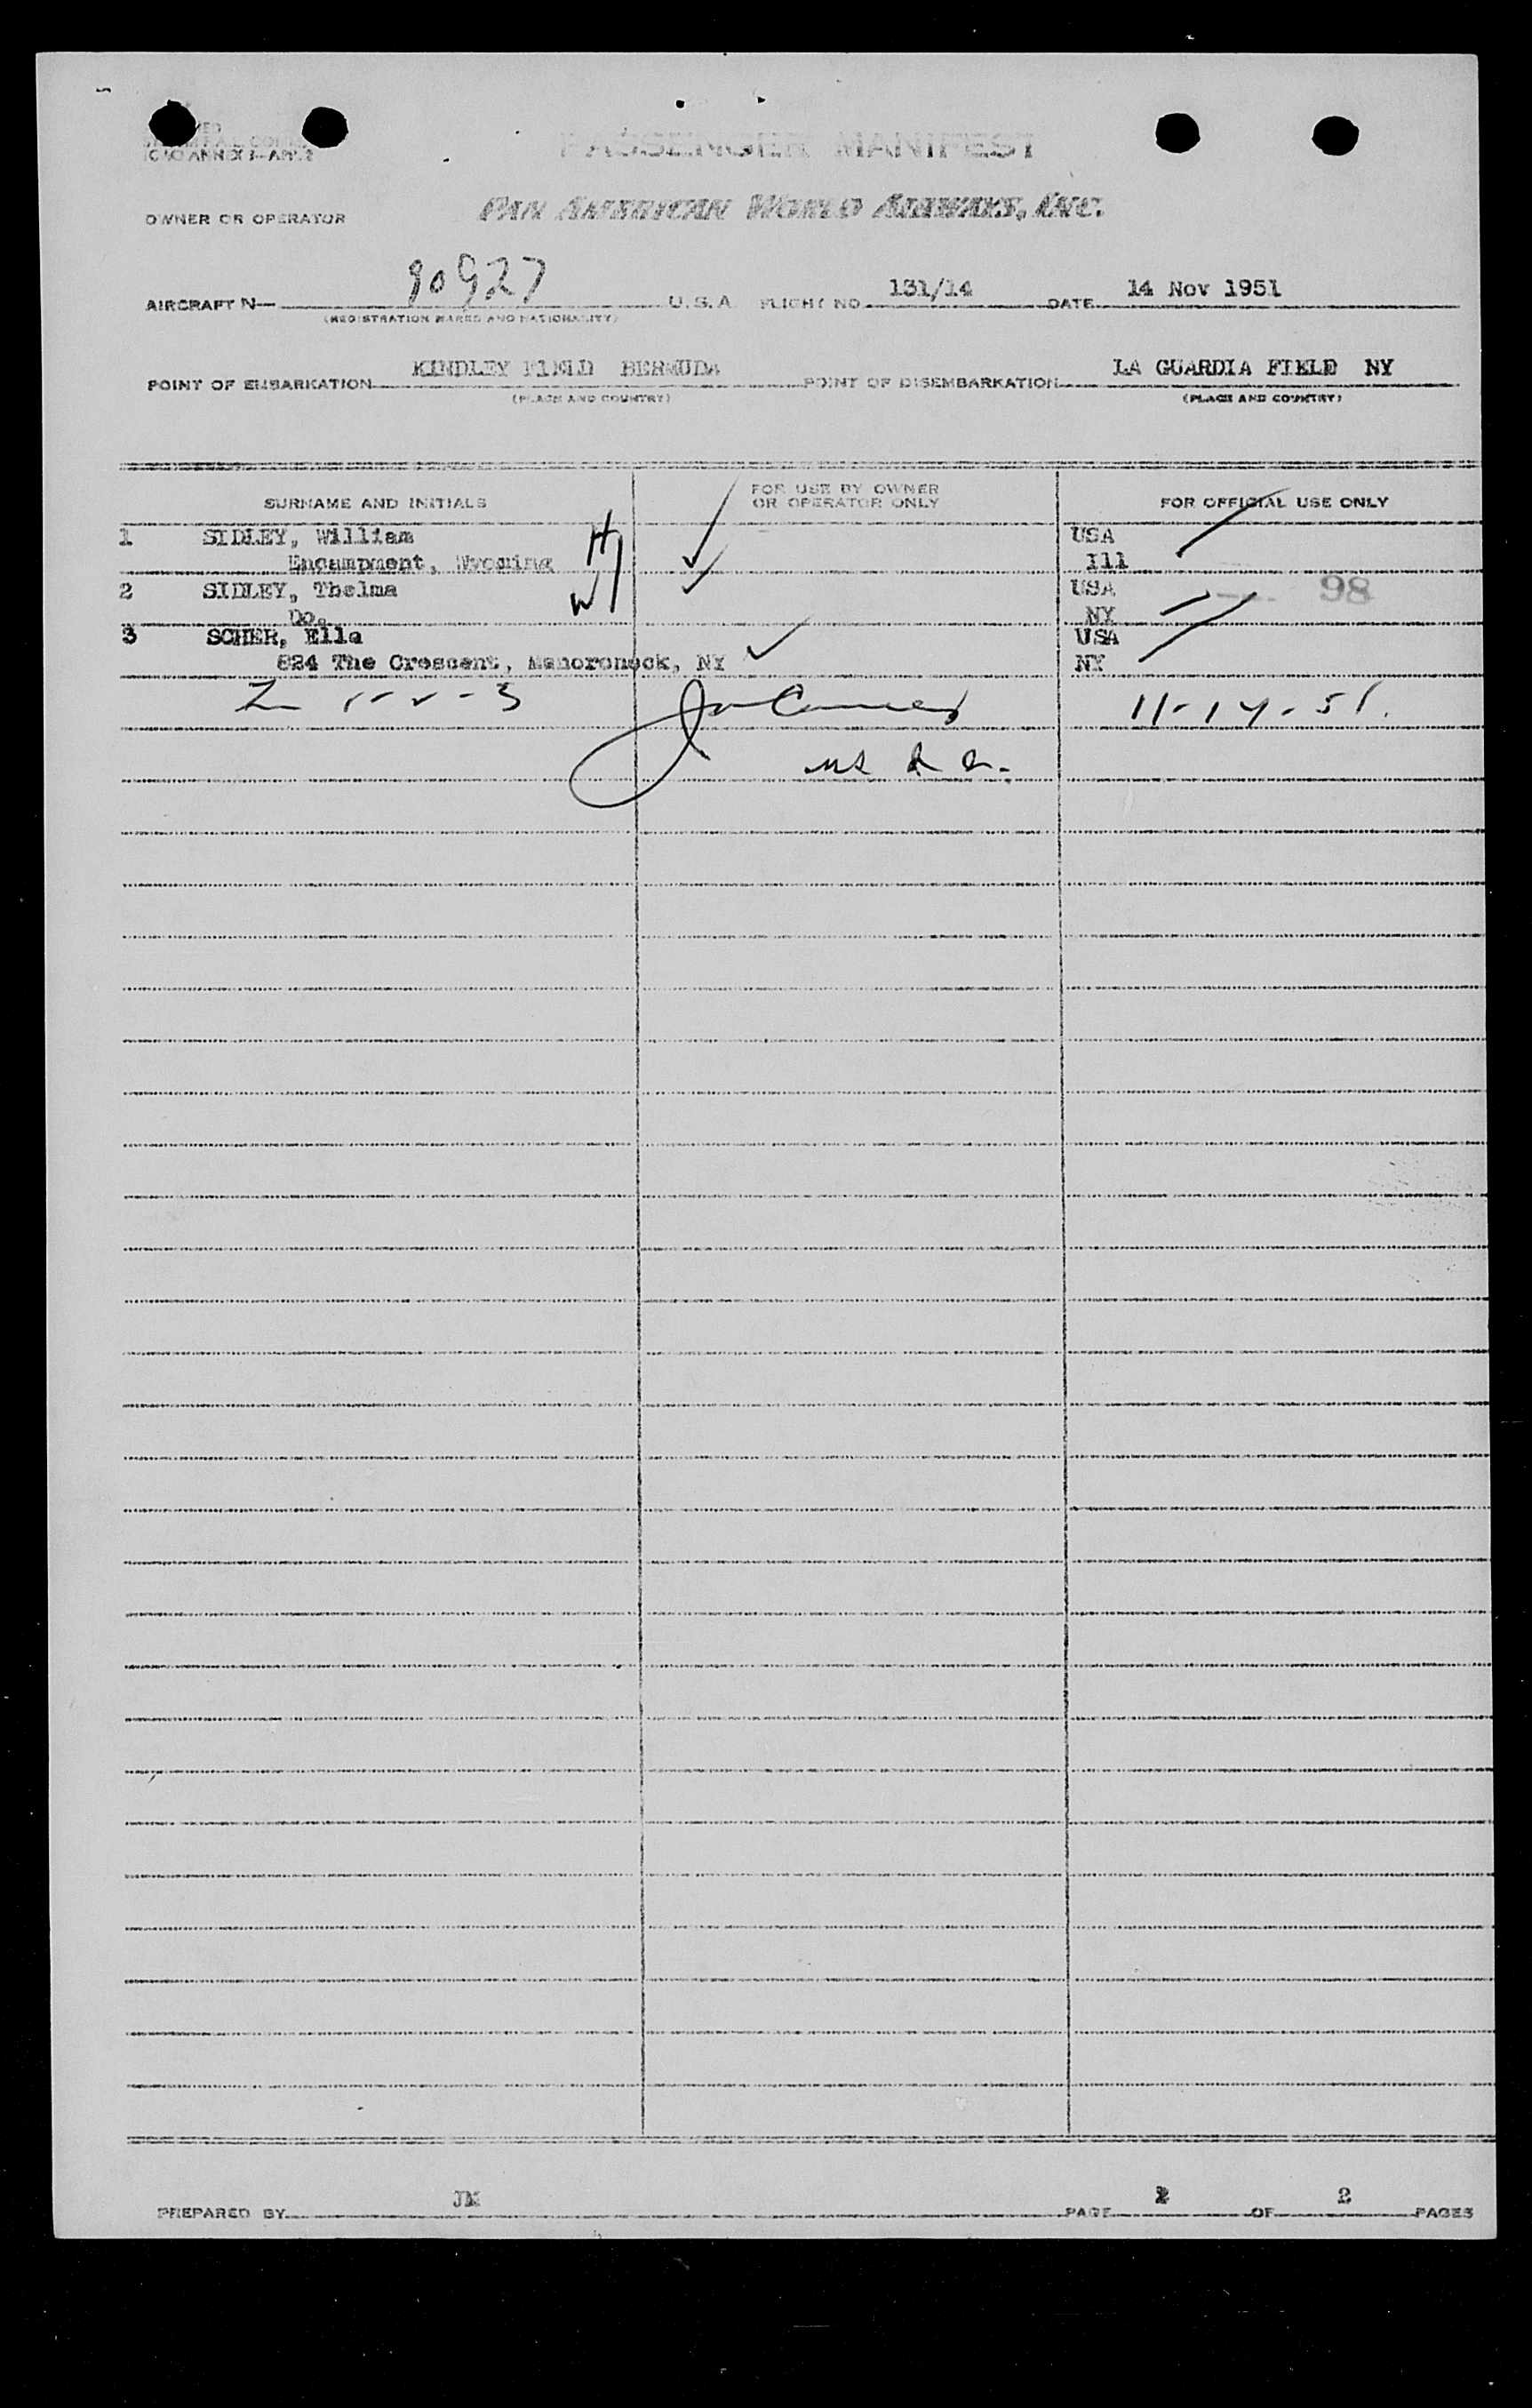 ICAO ANNEX 9—APP. 2
PASSENGER MANIFEST
OWNER OR OPERATOR PAN AMERICAN WORLD AIRWAYS, INC.
AIRCRAFT N— 90927 U.S.A. FLIGHT NO. 131/14 DATE 14 Nov 1951
(REGISTRATION MARKS AND NATIONALITY)
POINT OF EMBARKATION KINDLEY FIELD BERMUDA POINT OF DISEMBARKATION LA GUARDIA FIELD NY
(PLACE AND COUNTRY) (PLACE AND COUNTRY)
SURNAME AND INITIALS FOR USE BY OWNER OR OPERATOR ONLY FOR OFFICIAL USE ONLY
1 SIDLEY, William H USA
Encampment, Wyoming Ill
2 SIDLEY, Thelma W USA 98
Do. NY
3 SCHER, Ella USA
824 The Crescent, Mamoroneck, NY NY
1-2-3 11-14-51.
PREPARED BY JM PAGE 2 OF 2 PAGES